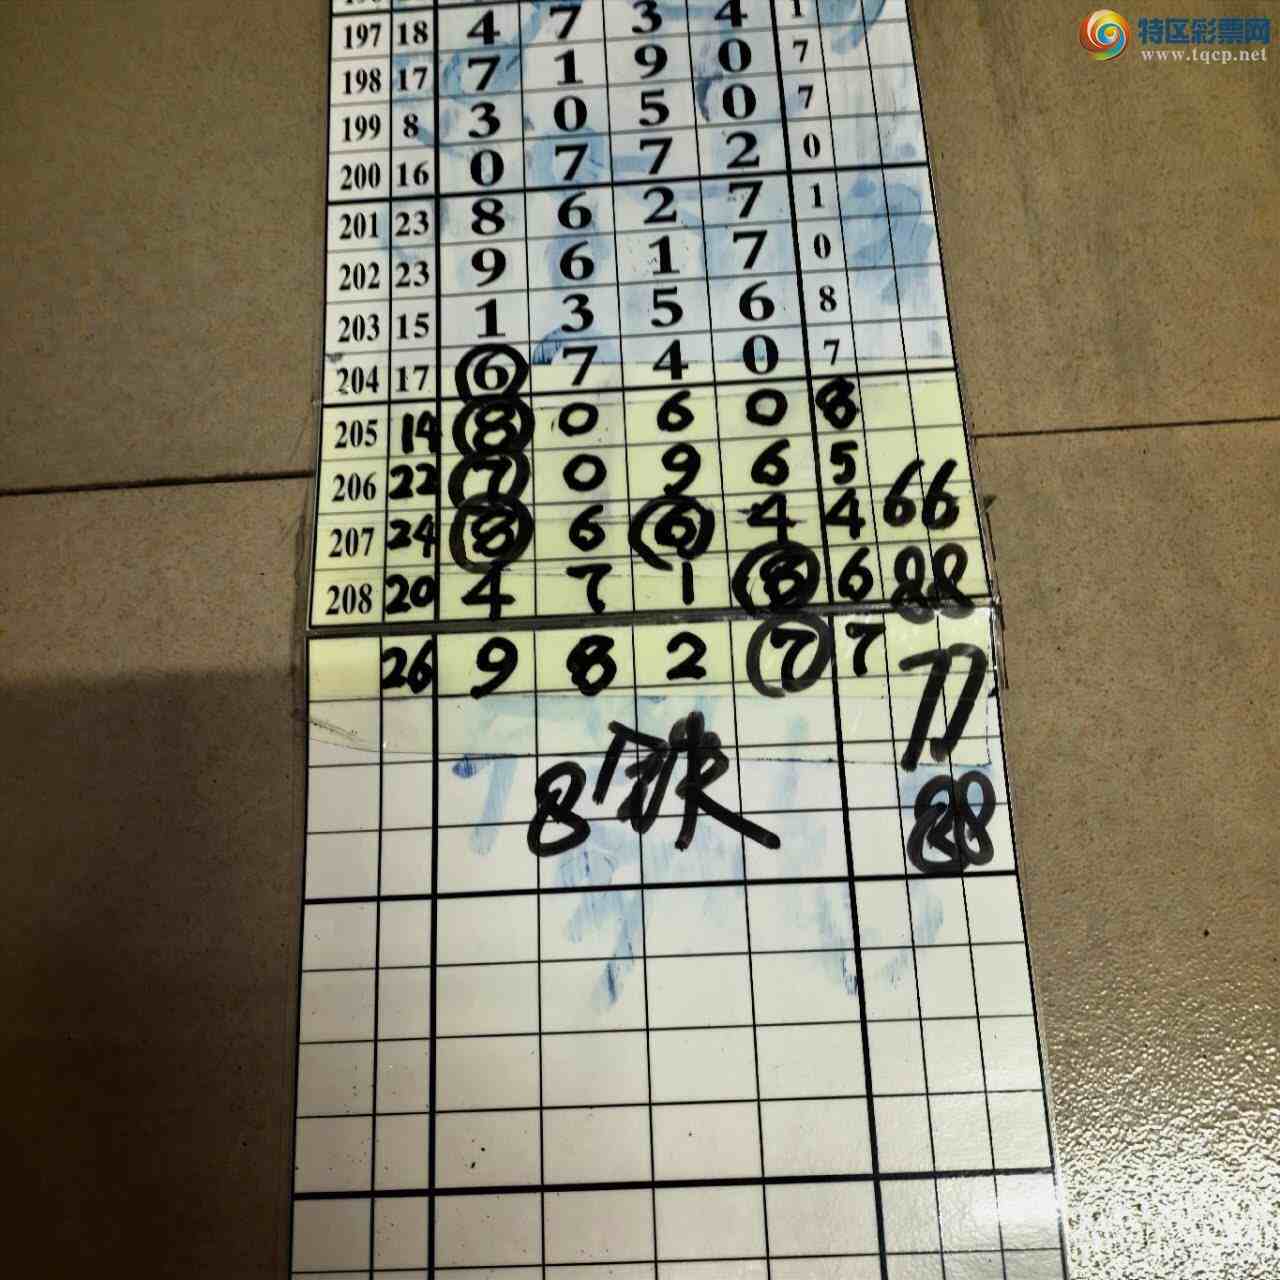 特区彩票网
www.tqcp.net
197 18 4 7 3 4 1
198 17 7 1 9 0 7
199 8 3 0 5 0 7
200 16 0 7 7 2 0
201 23 8 6 2 7 1
202 23 9 6 1 7 0
203 15 1 3 5 6 8
204 17 6 7 4 0 7
205 14 8 0 6 0 8
206 22 7 0 9 6 5
66
207 24 8 6 6 4 4
208 20 4 7 1 8 6 88
26 9 8 2 7 7
77
8
88